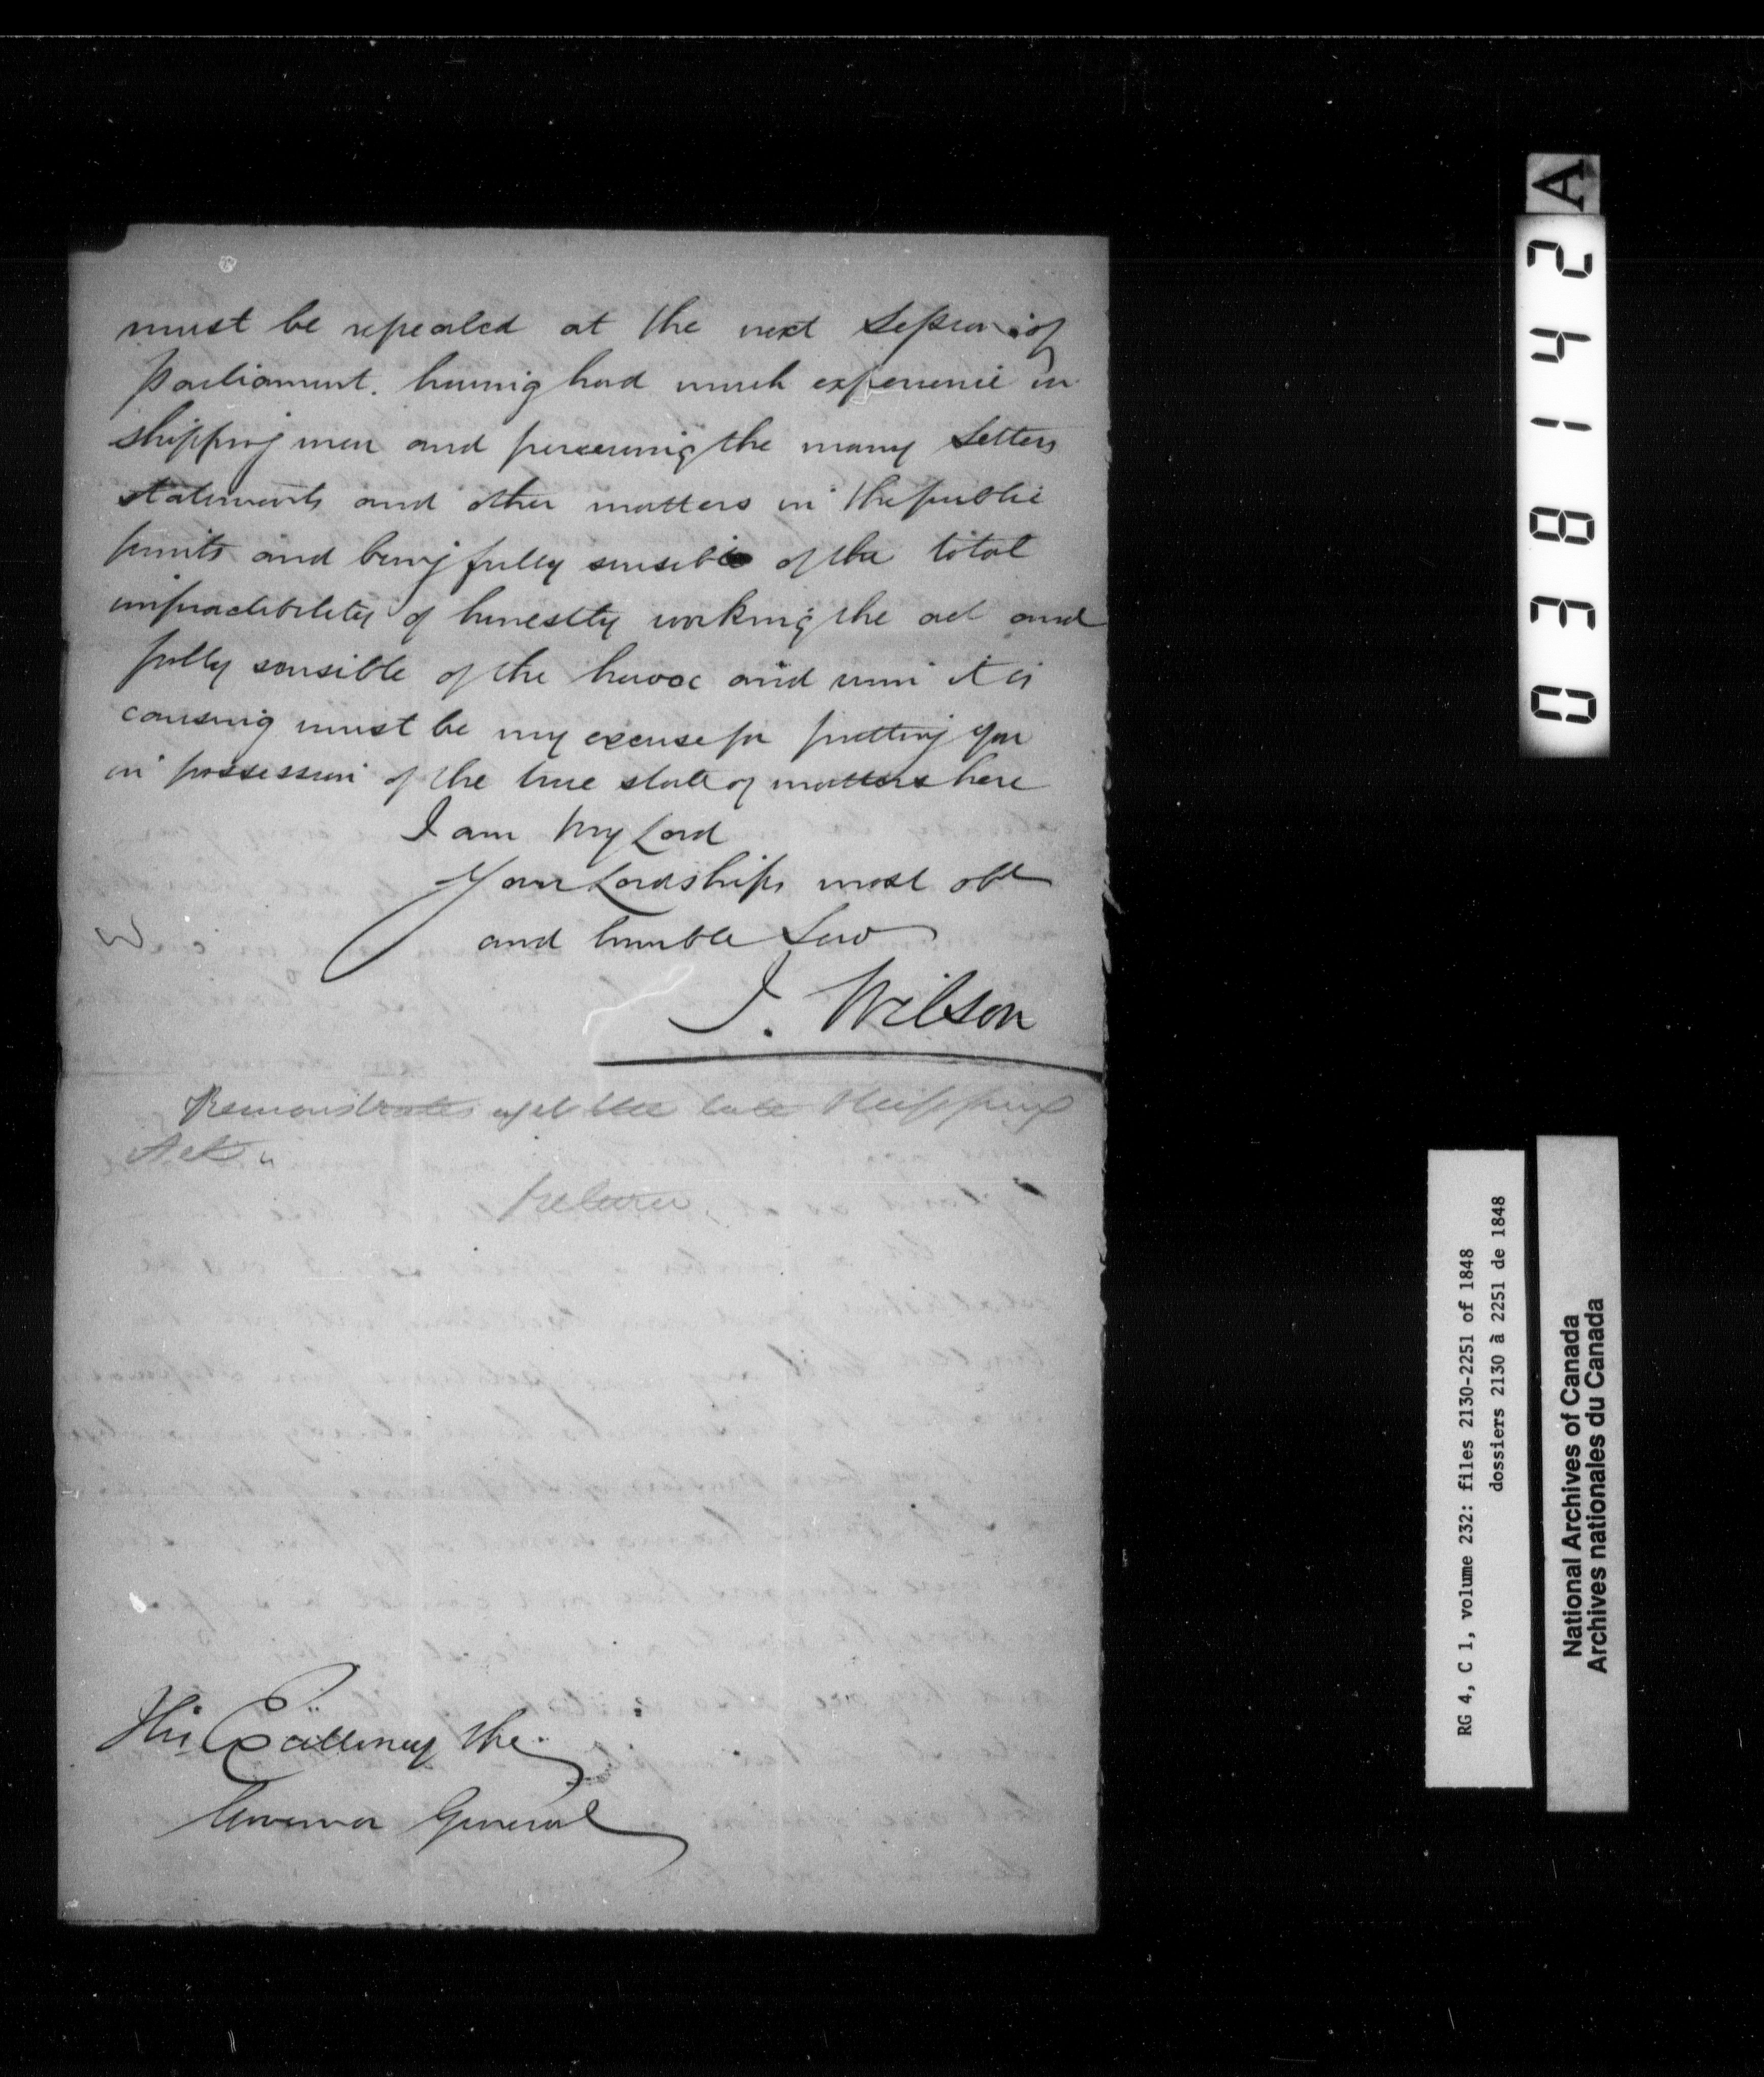 must be repealed at the next Session of
Parliament. having had much experience in
shipping men and perceiving the many Letters
statements and other matters in the public
prints and being fully sensible of the total
impractibility of honestly working the act and
fully sensible of the havoc and ruin it is
causing must be my excuse for putting you
in possession of the true state of matters here
I am My Lord
Your Lordships most obt
and humble Serv
J. Wilson
Remonstrates agst the late Shipping
Act
His Excellency the
Governor General
03814 2 A
RG 4, C 1, volume 232: files 2130-2251 of 1848
dossiers 2130 à 2251 de 1848
National Archives of Canada
Archives nationales du Canada